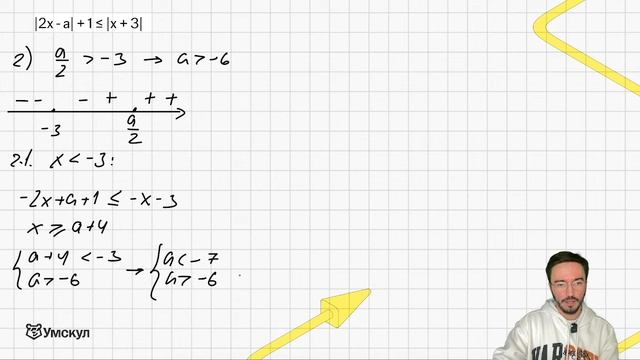 |2x - a| + 1 ≤ |x + 3|
2) a/2 > -3 → a > -6
- - - + + +
-3 a/2
2.1. x < -3:
-2x+a+1 ≤ -x-3
x ≥ a+4
{a+4 < -3 → {a < -7
{a > -6 {a > -6
Умскул